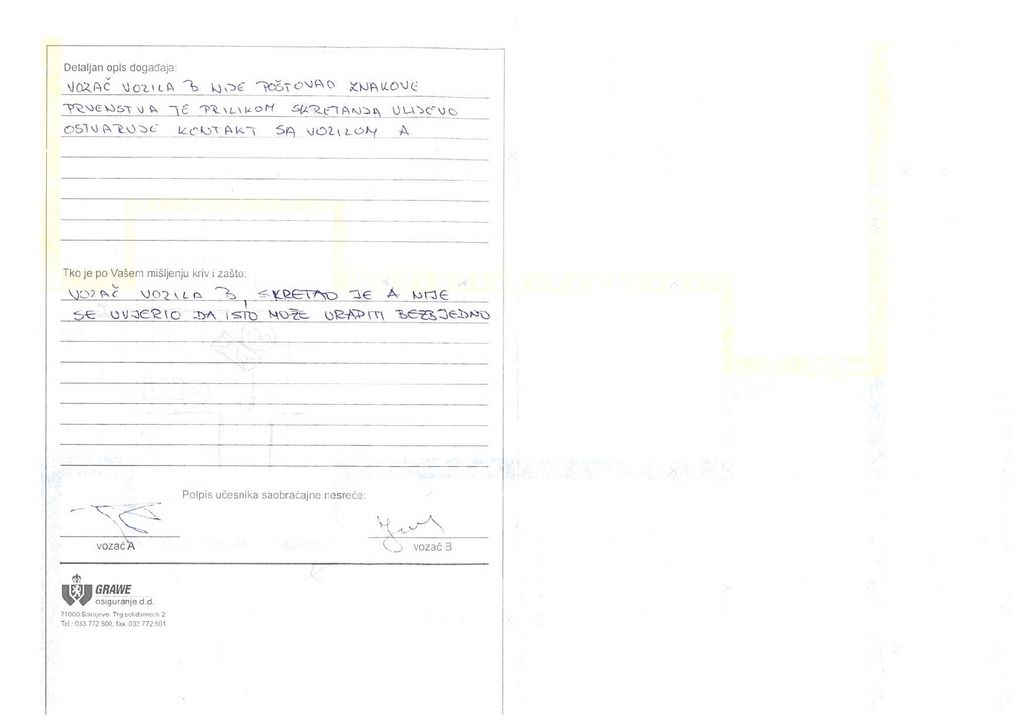 Detaljan opis događaja:
VOZAČ VOZILA B NIJE POŠTOVAO ZNAKOVE
PRVENSTVA TE PRILIKOM SKRETANJA ULIJEVO
OSTVARUJE KONTAKT SA VOZILOM A
Tko je po Vašem mišljenju kriv i zašto:
VOZAČ VOZILA B, SKRETAO JE A NIJE
SE UVJERIO DA ISTO MOŽE URADITI BEZBJEDNO
Potpis učesnika saobraćajne nesreće:
vozač A
vozač B
GRAWE
osiguranje d.d.
71000 Sarajevo, Trg solidarnosti 2
Tel.: 033 772 500, fax: 033 772 501